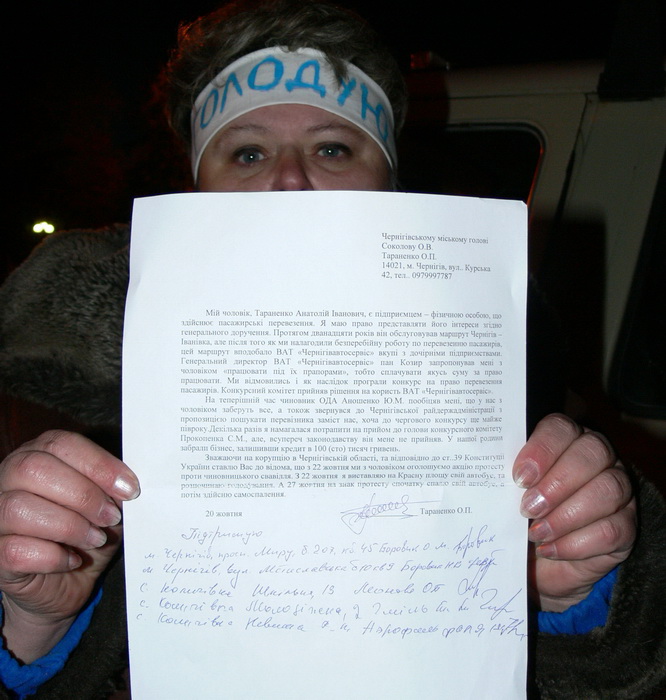 ГОЛОДУЮ
Чернігівському міському голові
Соколову О.В.
Тараненко О.П.
14021, м. Чернігів, вул. Курська
42, тел.. 0979997787
Мій чоловік, Тараненко Анатолій Іванович, є підприємцем – фізичною особою, що
здійснює пасажирські перевезення. Я маю право представляти його інтереси згідно
генерального доручення. Протягом дванадцяти років він обслуговував маршрут Чернігів –
Іванівка, але після того як ми налагодили безперебійну роботу по перевезенню пасажирів,
цей маршрут вподобало ВАТ «Чернігівавтосервіс» вкупі з дочірніми підприємствами.
Генеральний директор ВАТ "Чернігівавтосервіс" пан Козир запропонував мені з
чоловіком «працювати під їх прапорами», тобто сплачувати якусь суму за право
працювати. Ми відмовились і як наслідок програли конкурс на право перевезення
пасажирів. Конкурсний комітет прийняв рішення на користь ВАТ «Чернігівавтосервіс».
На теперішній час чиновник ОДА Аношенко Ю.М. пообіцяв мені, що у нас з
чоловіком заберуть все, а також звернувся до Чернігівської райдержадміністрації з
пропозицією пошукати перевізника заміст нас, хоча до чергового конкурсу ще майже
півроку. Декілька разів я намагалася потрапити на прийом до голови конкурсного комітету
Прокопенка С.М., але, всупереч законодавству він мене не прийняв. У нашої родини
забрали бізнес, залишивши кредит в 100 (сто) тисяч гривень.
Зважаючи на корупцію в Чернігівській області, та відповідно до ст..39 Конституції
України ставлю Вас до відома, що з 22 жовтня ми з чоловіком оголошуємо акцію протесту
проти чиновницького свавілля. З 22 жовтня я виставляю на Красну площу свій автобус, та
розпочинаю голодування. А 27 жовтня на знак протесту спочатку спалю свій автобус, а
потім здійсню самоспалення.
20 жовтня Тараненко О.П.
Підтримую
м. Чернігів, просп. Миру, б 207, кв 45 Боровик О М
м. Чернігів, вул.
с. Количівка
с.
с.